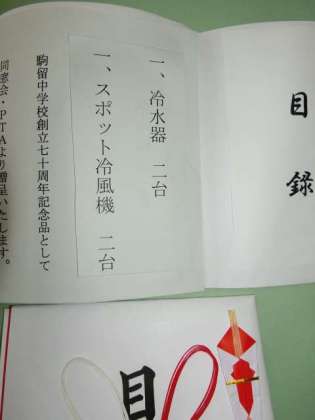 目録
一、冷水器　二台
一、スポット冷風機　二台
駒留中学校創立七十周年記念品として
同窓会・PTAより贈呈いたします。
目